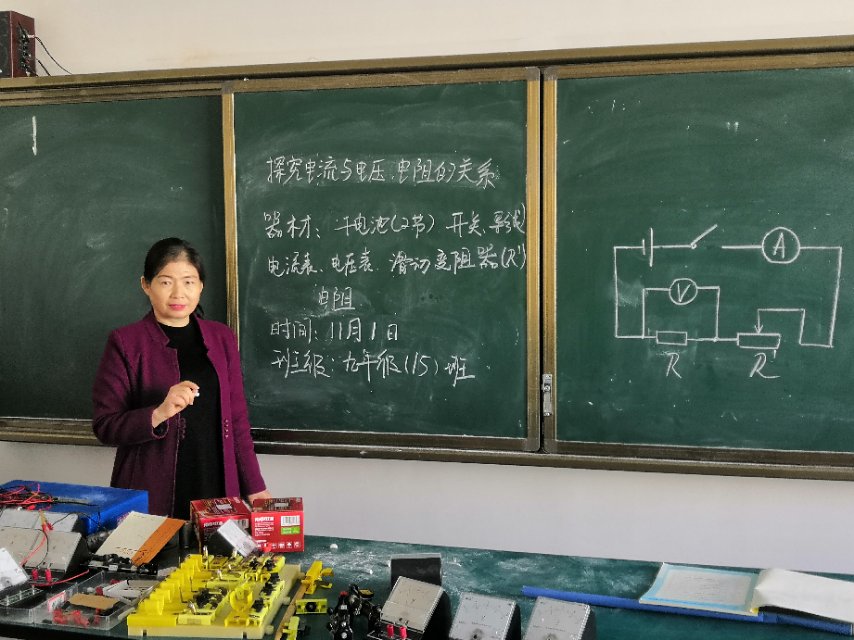 探究电流与电压、电阻的关系
器材：干电池(2节) 开关、导线
电流表、电压表、滑动变阻器(R')
电阻
时间：11月1日
班级：九年级(15)班
A
V
R
R'